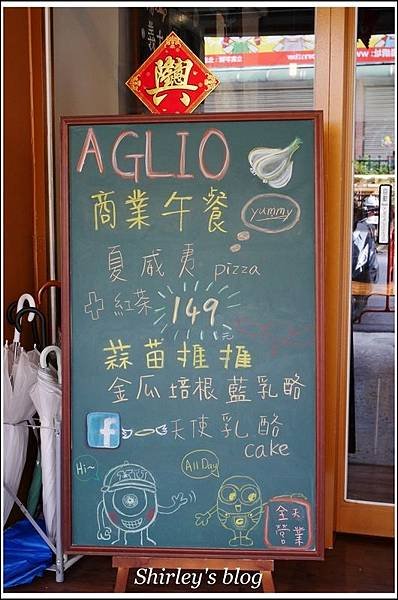 AGLIO
商業午餐
yummy
夏威夷 pizza
+ 紅茶 149元
蒜苗推推
金瓜培根藍乳酪
f 天使乳酪
cake
Hi~
All Day
全天
營業
Shirley's blog